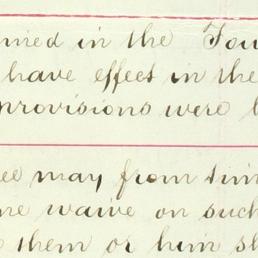 ned in the Fou
have effect in the
provisions were
ee may from tim
ne waive on such
them or him sh